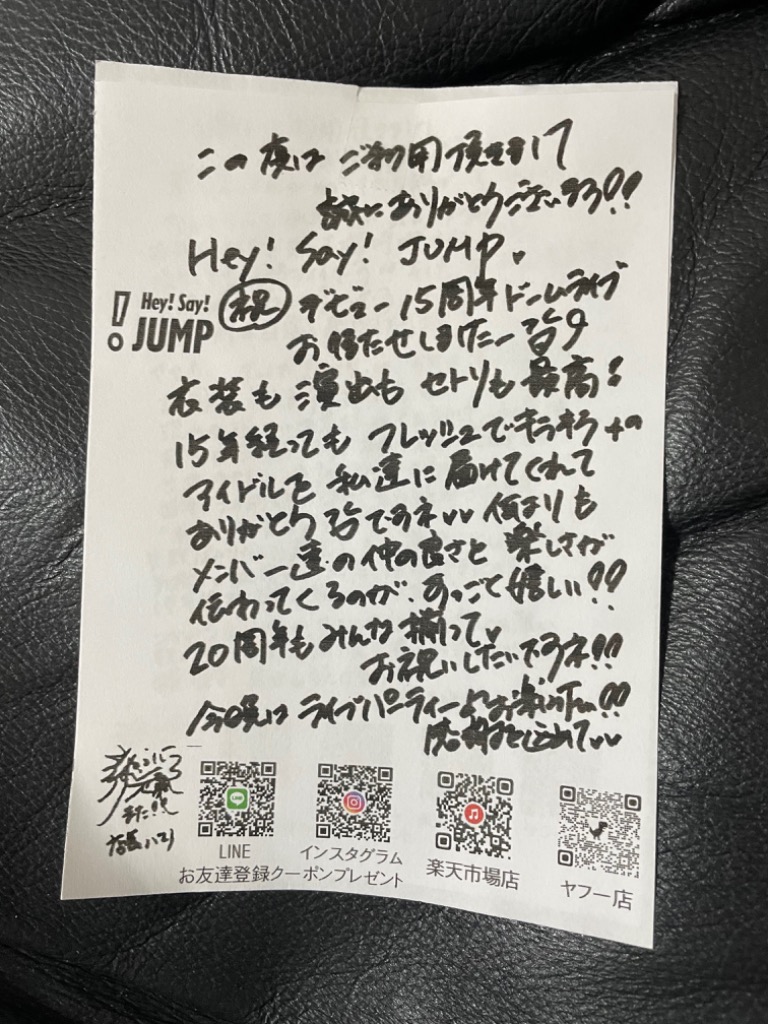 この度は ご利用頂きまして
誠にありがとうございます!!
Hey! Say! JUMP
Hey! Say!
JUMP
祝 デビュー15周年ドームライブ
お待たせしましたー
衣装も 演出も セトリも 最高!
15年経っても フレッシュでキラキラ
アイドルを 私達に 届けてくれて
ありがとう ですネ 何よりも
メンバー達の仲の良さと 楽しさが
伝わってくるのが、すっごく嬉しい!!
20周年もみんな揃って
お祝いしたいですネ!!
ライブパーティー
込めて
LINE
インスタグラム
お友達登録クーポンプレゼント
楽天市場店
ヤフー店